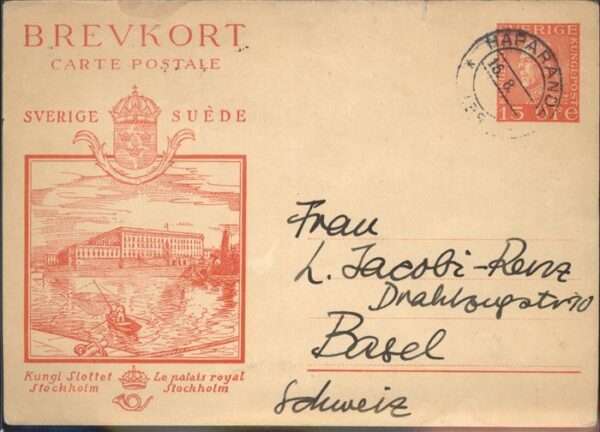 BREVKORT
CARTE POSTALE
SVERIGE SUÈDE
SVERIGE
KUNGL. POST
15 ÖRE
HAPARANDA
16.8.
Frau
L. Jacobi-Renz
Drahtzugstr 70
Basel
Schweiz
Kungl Slottet Le palais royal
Stockholm Stockholm